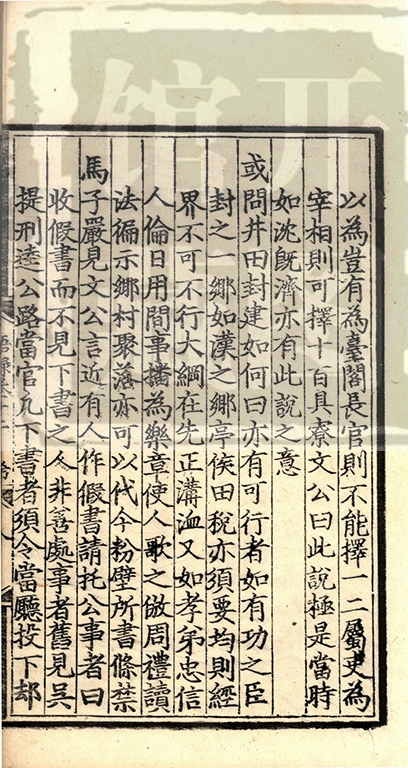 以為豈有為臺閣長官則不能擇一二屬吏為
宰相則可擇十百具寮文公曰此說極是當時
如沈旣濟亦有此說之意
或問井田封建如何曰亦有可行者如有功之臣
封之一鄉如漢之鄉亭侯田稅亦須要均則經
界不可不行大綱在先正溝洫又如孝弟忠信
人倫日用間事播為樂章使人歌之倣周禮讀
法徧示鄉村聚落亦可以代今粉壁所書條禁
馬子嚴見文公言近有人作假書請托公事者曰
收假書而不見下書之人非善處事者舊見吳
提刑逵公路當官凡下書者須令當廳投下却